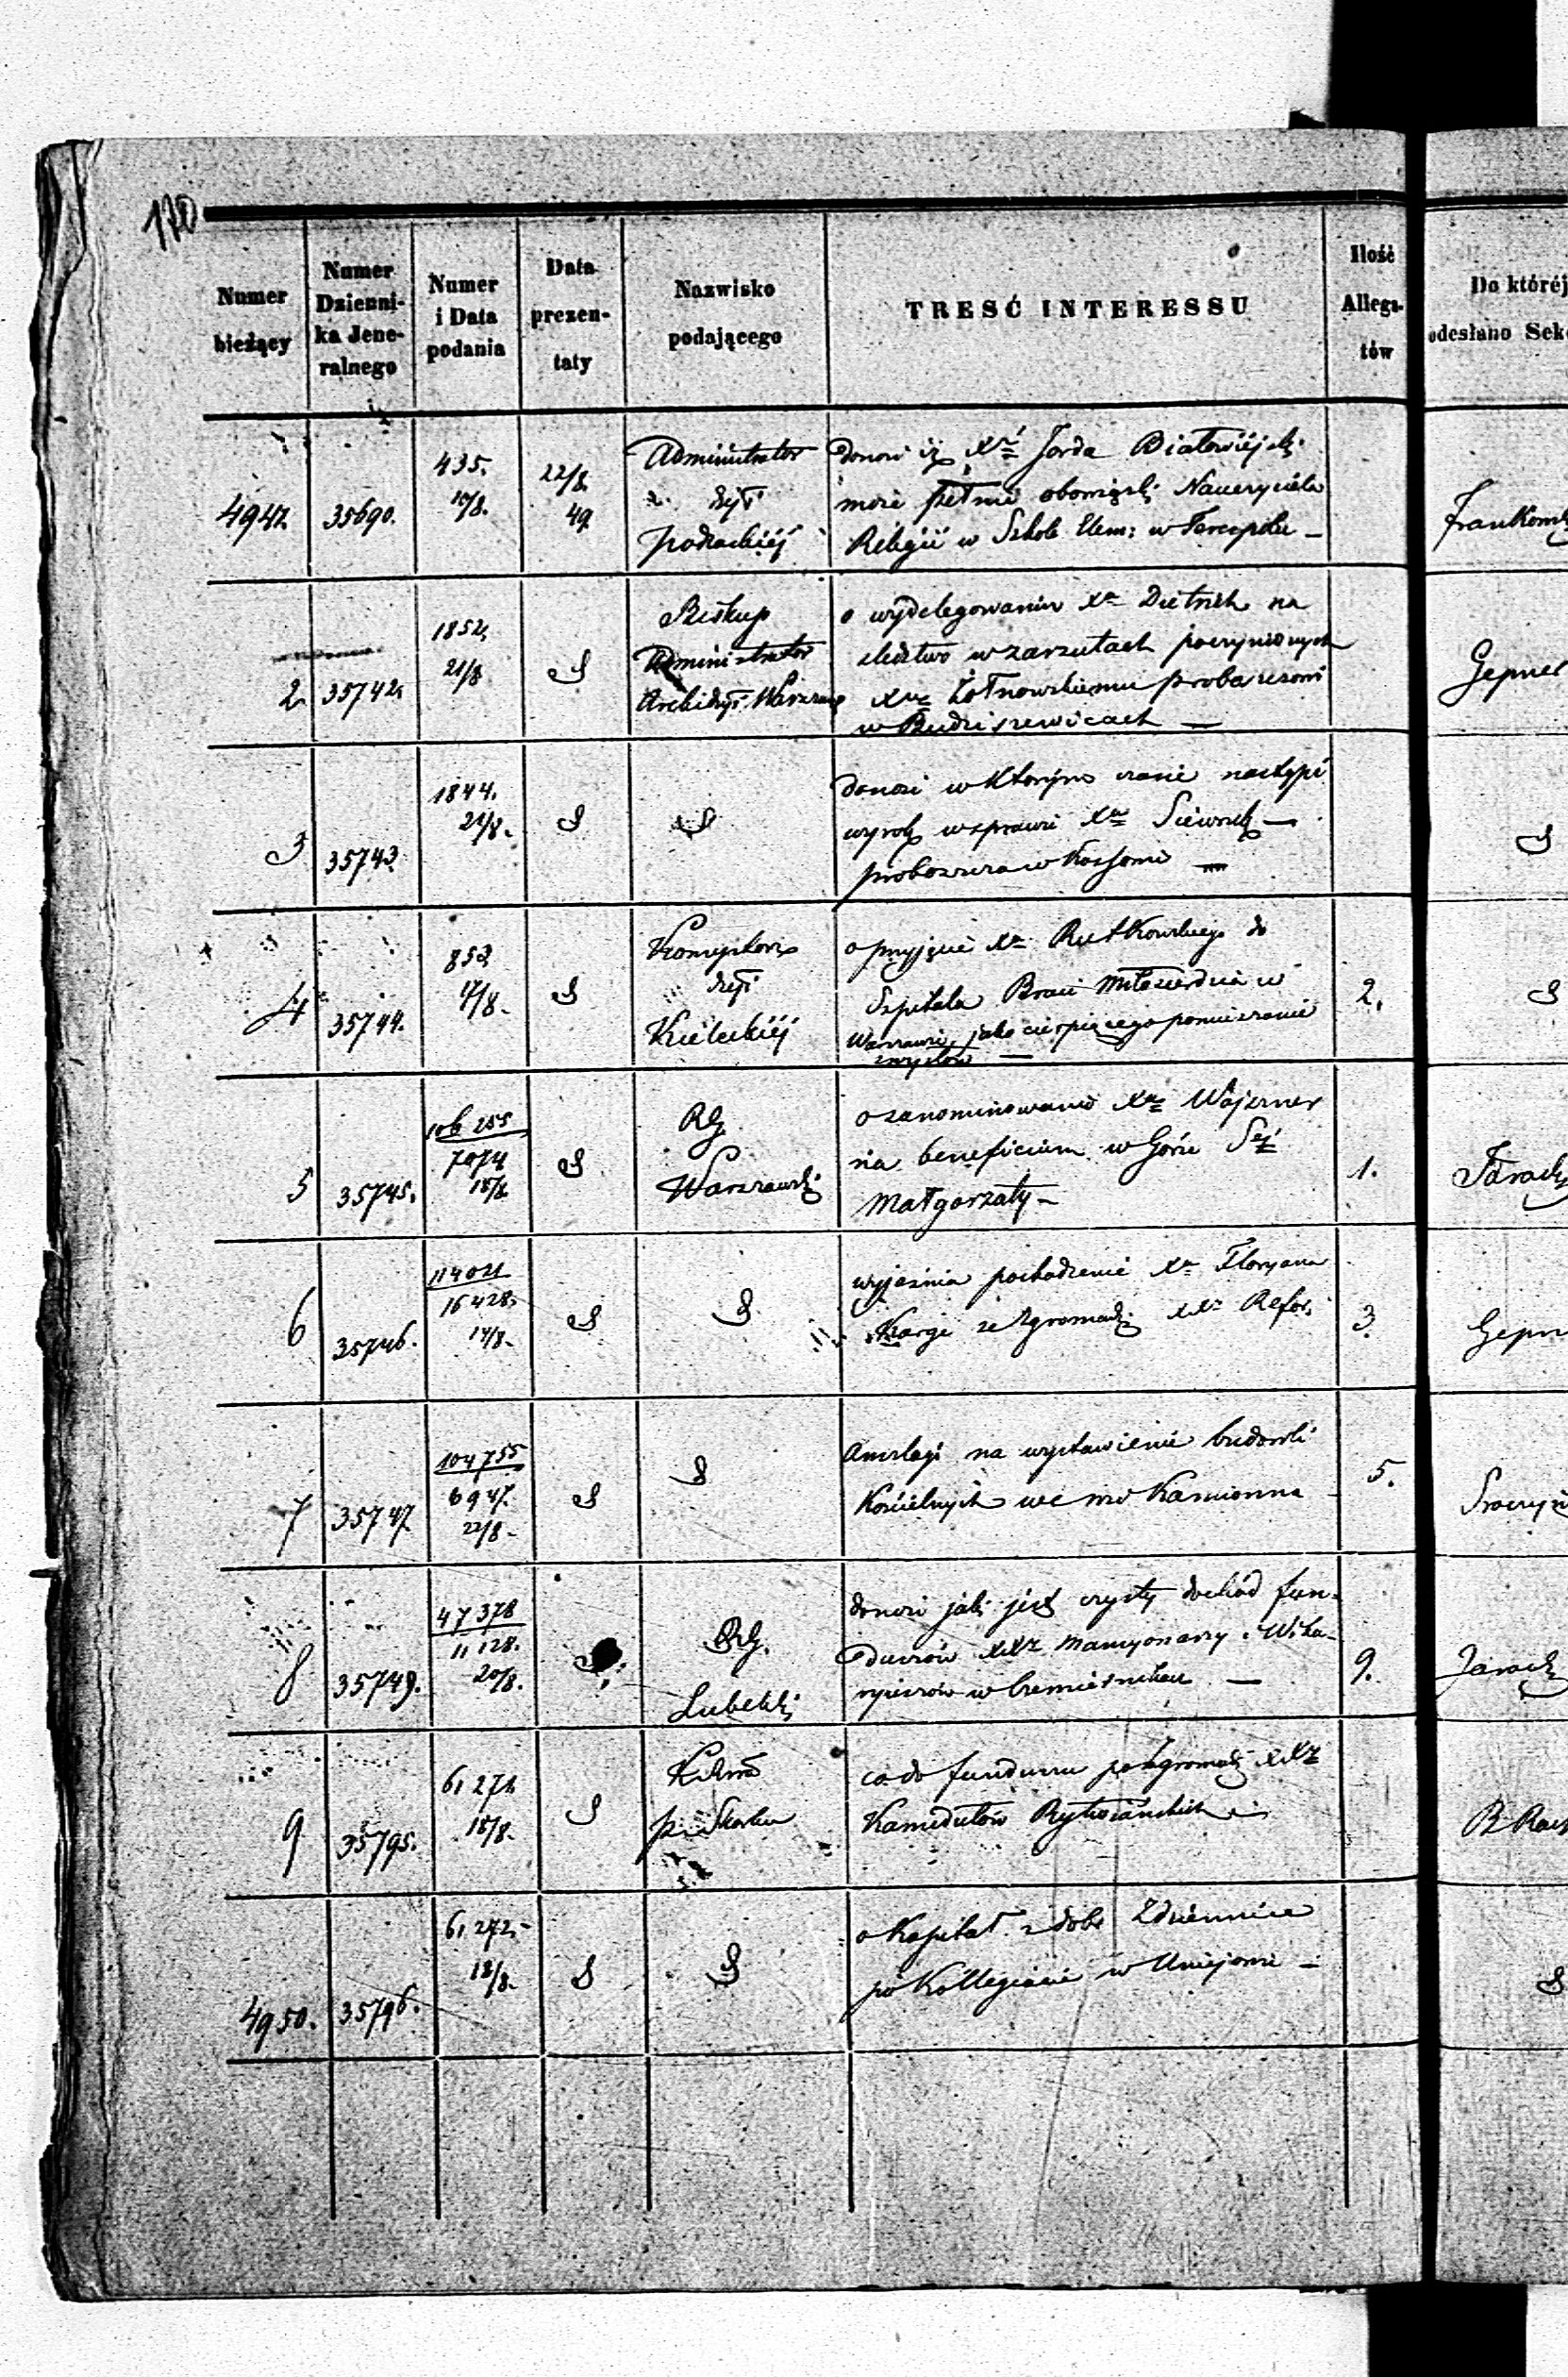 170
Numer
bieżący
Numer
Dzienni-
ka Jene-
ralnego
Numer
i Data
podania
Data
prezen-
taty
Nazwisko
podającego
TRESĆ INTERESSU
Ilość
Allega-
tów
Do któréj
odesłano Sek
35690.
435.
18/8.
22/8.
49.
Administrator
Dyi
Podlaskiéj
donosi iż Xdz Jarda
może pełnić obowiązki Nauczyciela
Religii w Szkole Elem: w
2
35742.
1852.
21/8
Biskup
Administrator
Archidyi Warszaw
o wydelegowaniu Xa na
śledztwo w zarzutach poczynionych
Xdz proboszczowi
w Budziszewicach —
Gepner
3
35743
1844.
21/8.
donosi w którym czasie nastąpi
wyrok w sprawie Xa
proboszcza w —
4
35744.
852
17/8.
Konsystorz
Dyi
Kieleckiéj
o przyjęcie Xa Rutkowskiego do
Szpitala Braci Miłosierdzia w
Warszawie, jako cierpiącego pomieszanie
zmysłów —
2.
5
35745.
106 255
7074
18/8
RG.
Warszawski
o zanominowanie Xa Wajzner
na beneficium w Górze Sej
Małgorzaty —
1.
6
35746.
114021
16428.
14/8.
wyjaśnia pochodzenie Xa Floryana
Karge ze Zgromadz. XX Refor.
3.
Gepn
7
35747
104755
6947.
22/8 -
na wystawienie budowli
Kościelnych we wsi Kamionna
5.
8
35749.
47378
11128.
20/8.
RG.
Lubelski
donosi jaki jest czysty dochód fun-
duszów XXz Mansyonarzy i Wika-
ryuszów w —
9.
9
35795.
61271
18/8.
co do funduszu po Zgromadz. XXz
Kamedułów Rytwiańskich —
4950.
35796.
61272.
18/8.
o Kapitał z dóbr Zdziennice
po Kollegiacie w Uniejowie —